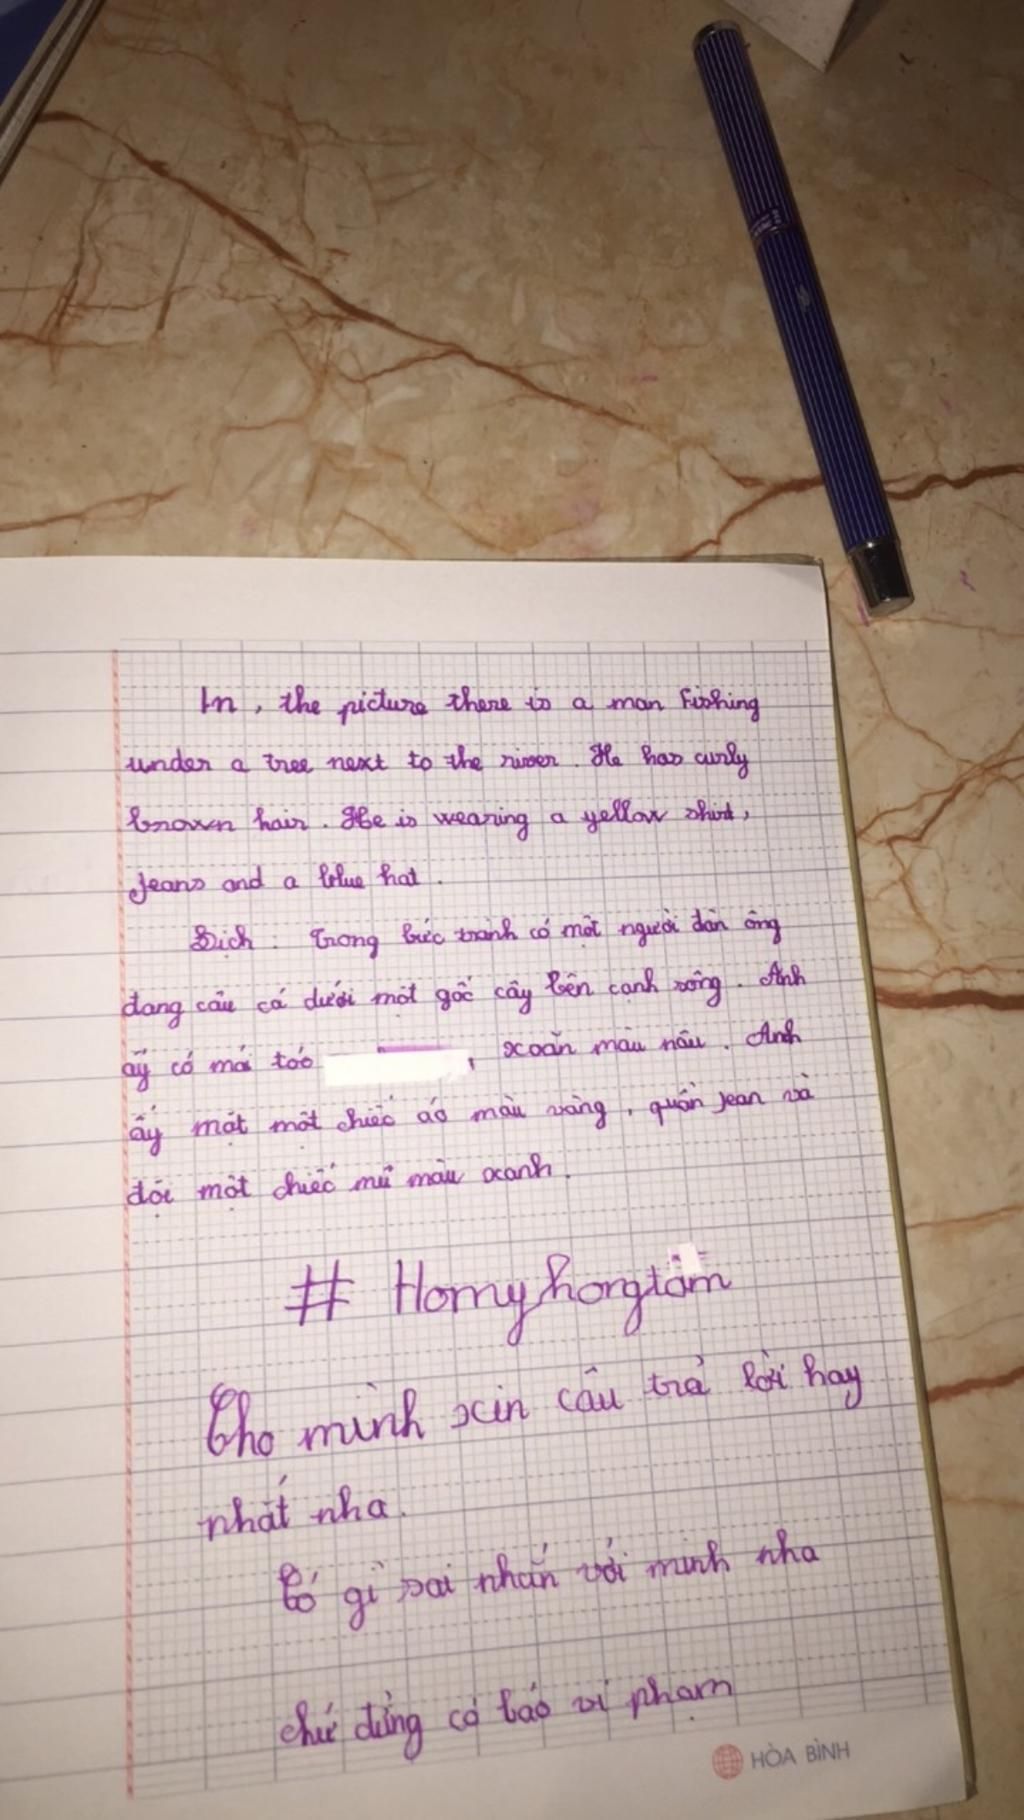 In, the picture there is a man Fishing
under a tree next to the river. He has curly
brown hair. He is wearing a yellow shirt,
Jeans and a blue hat.
Dịch: Trong bức tranh có một người đàn ông
đang câu cá dưới một gốc cây bên cạnh sông. Anh
ấy có mái tóc , xoăn màu nâu. Anh
ấy mặt một chiếc áo màu vàng, quần jean và
đội một chiếc mũ màu xanh.
# Homyhongtâm
Cho mình xin câu trả lời hay
nhất nha.
Có gì sai nhắn với mình nha
chứ đừng có báo vi phạm
HÒA BÌNH